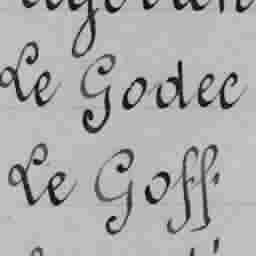 Le Godec
Le Goff